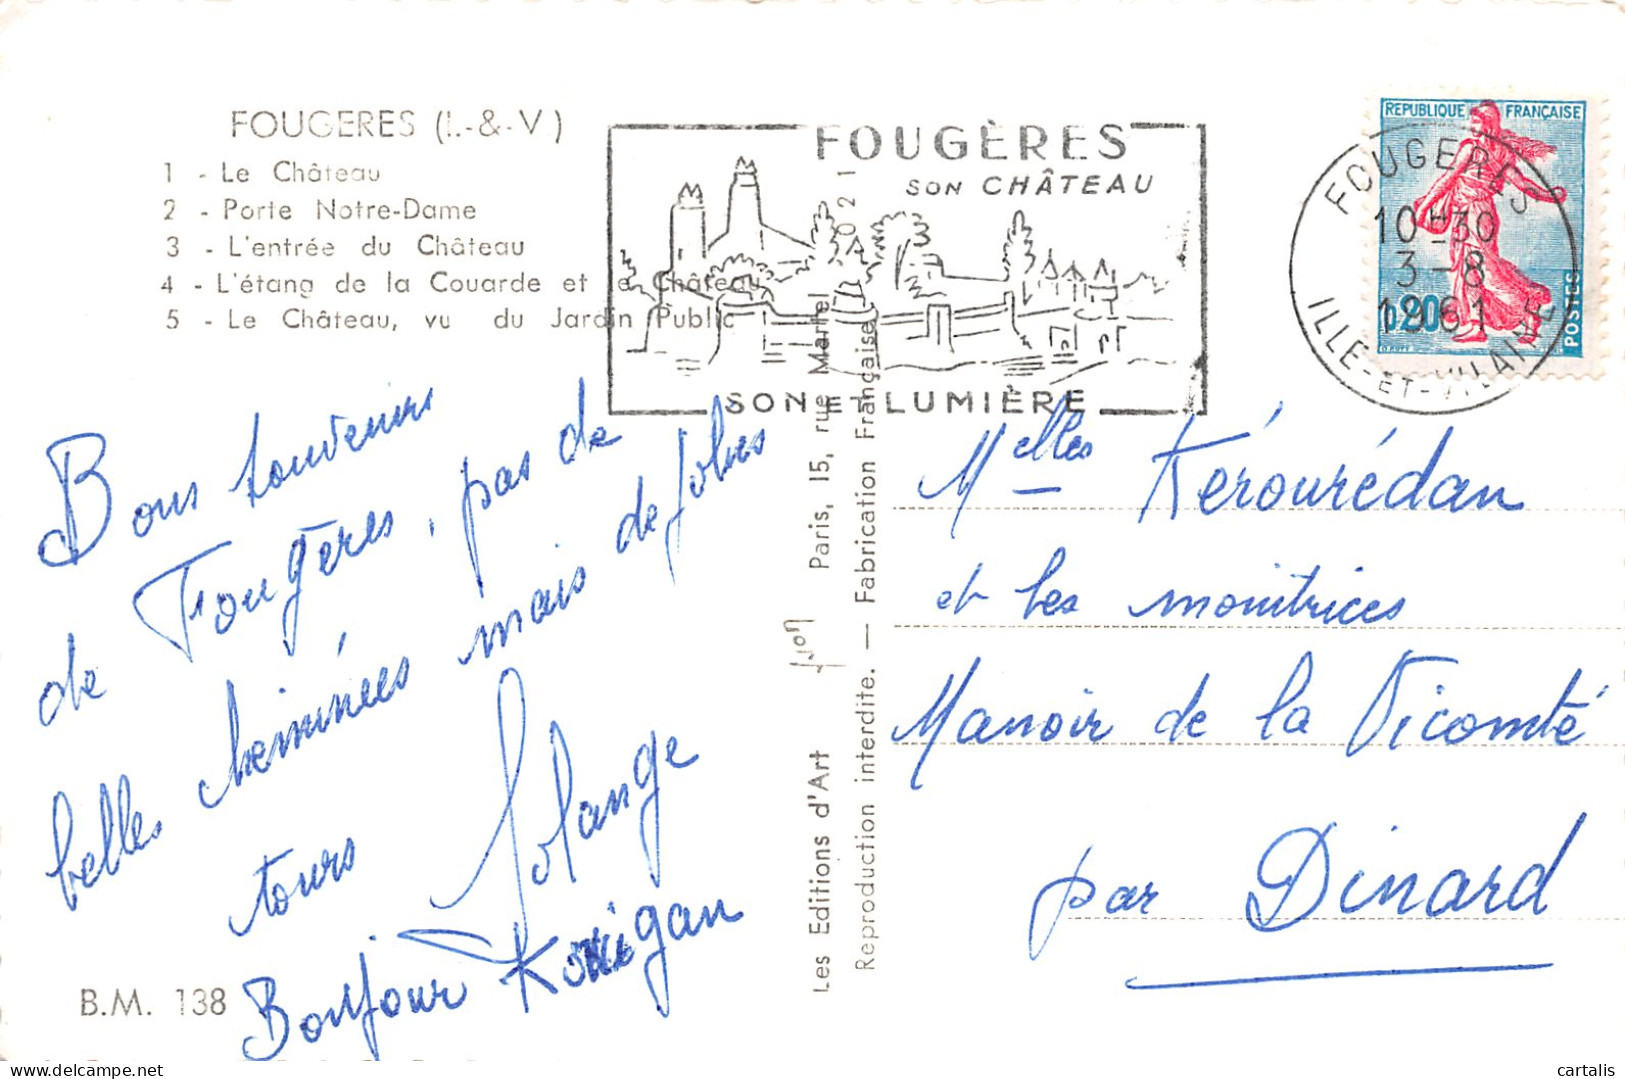 FOUGERES (I.-&-V)
1 - Le Château
2 - Porte Notre-Dame
3 - L'entrée du Château
4 - L'étang de la Couarde et le Château
5 - Le Château, vu du Jardin Public
FOUGÈRES
SON CHÂTEAU
SON ET LUMIÈRE
REPUBLIQUE FRANÇAISE
0,20
POSTES
FOUGERES
10 H 30
3 - 8
1961
ILLE-ET-VILAINE
Bons souvenirs
de Fougères, pas de
belles cheminées mais de jolies
tours
Solange
Bonjour
B.M. 138
Les Editions d'Art
Paris, 15, rue Martel
021
Reproduction interdite. — Fabrication Française
Melles Kerourédan
et les monitrices
Manoir de la Vicomté
par Dinard
delcampe.net
cartalis